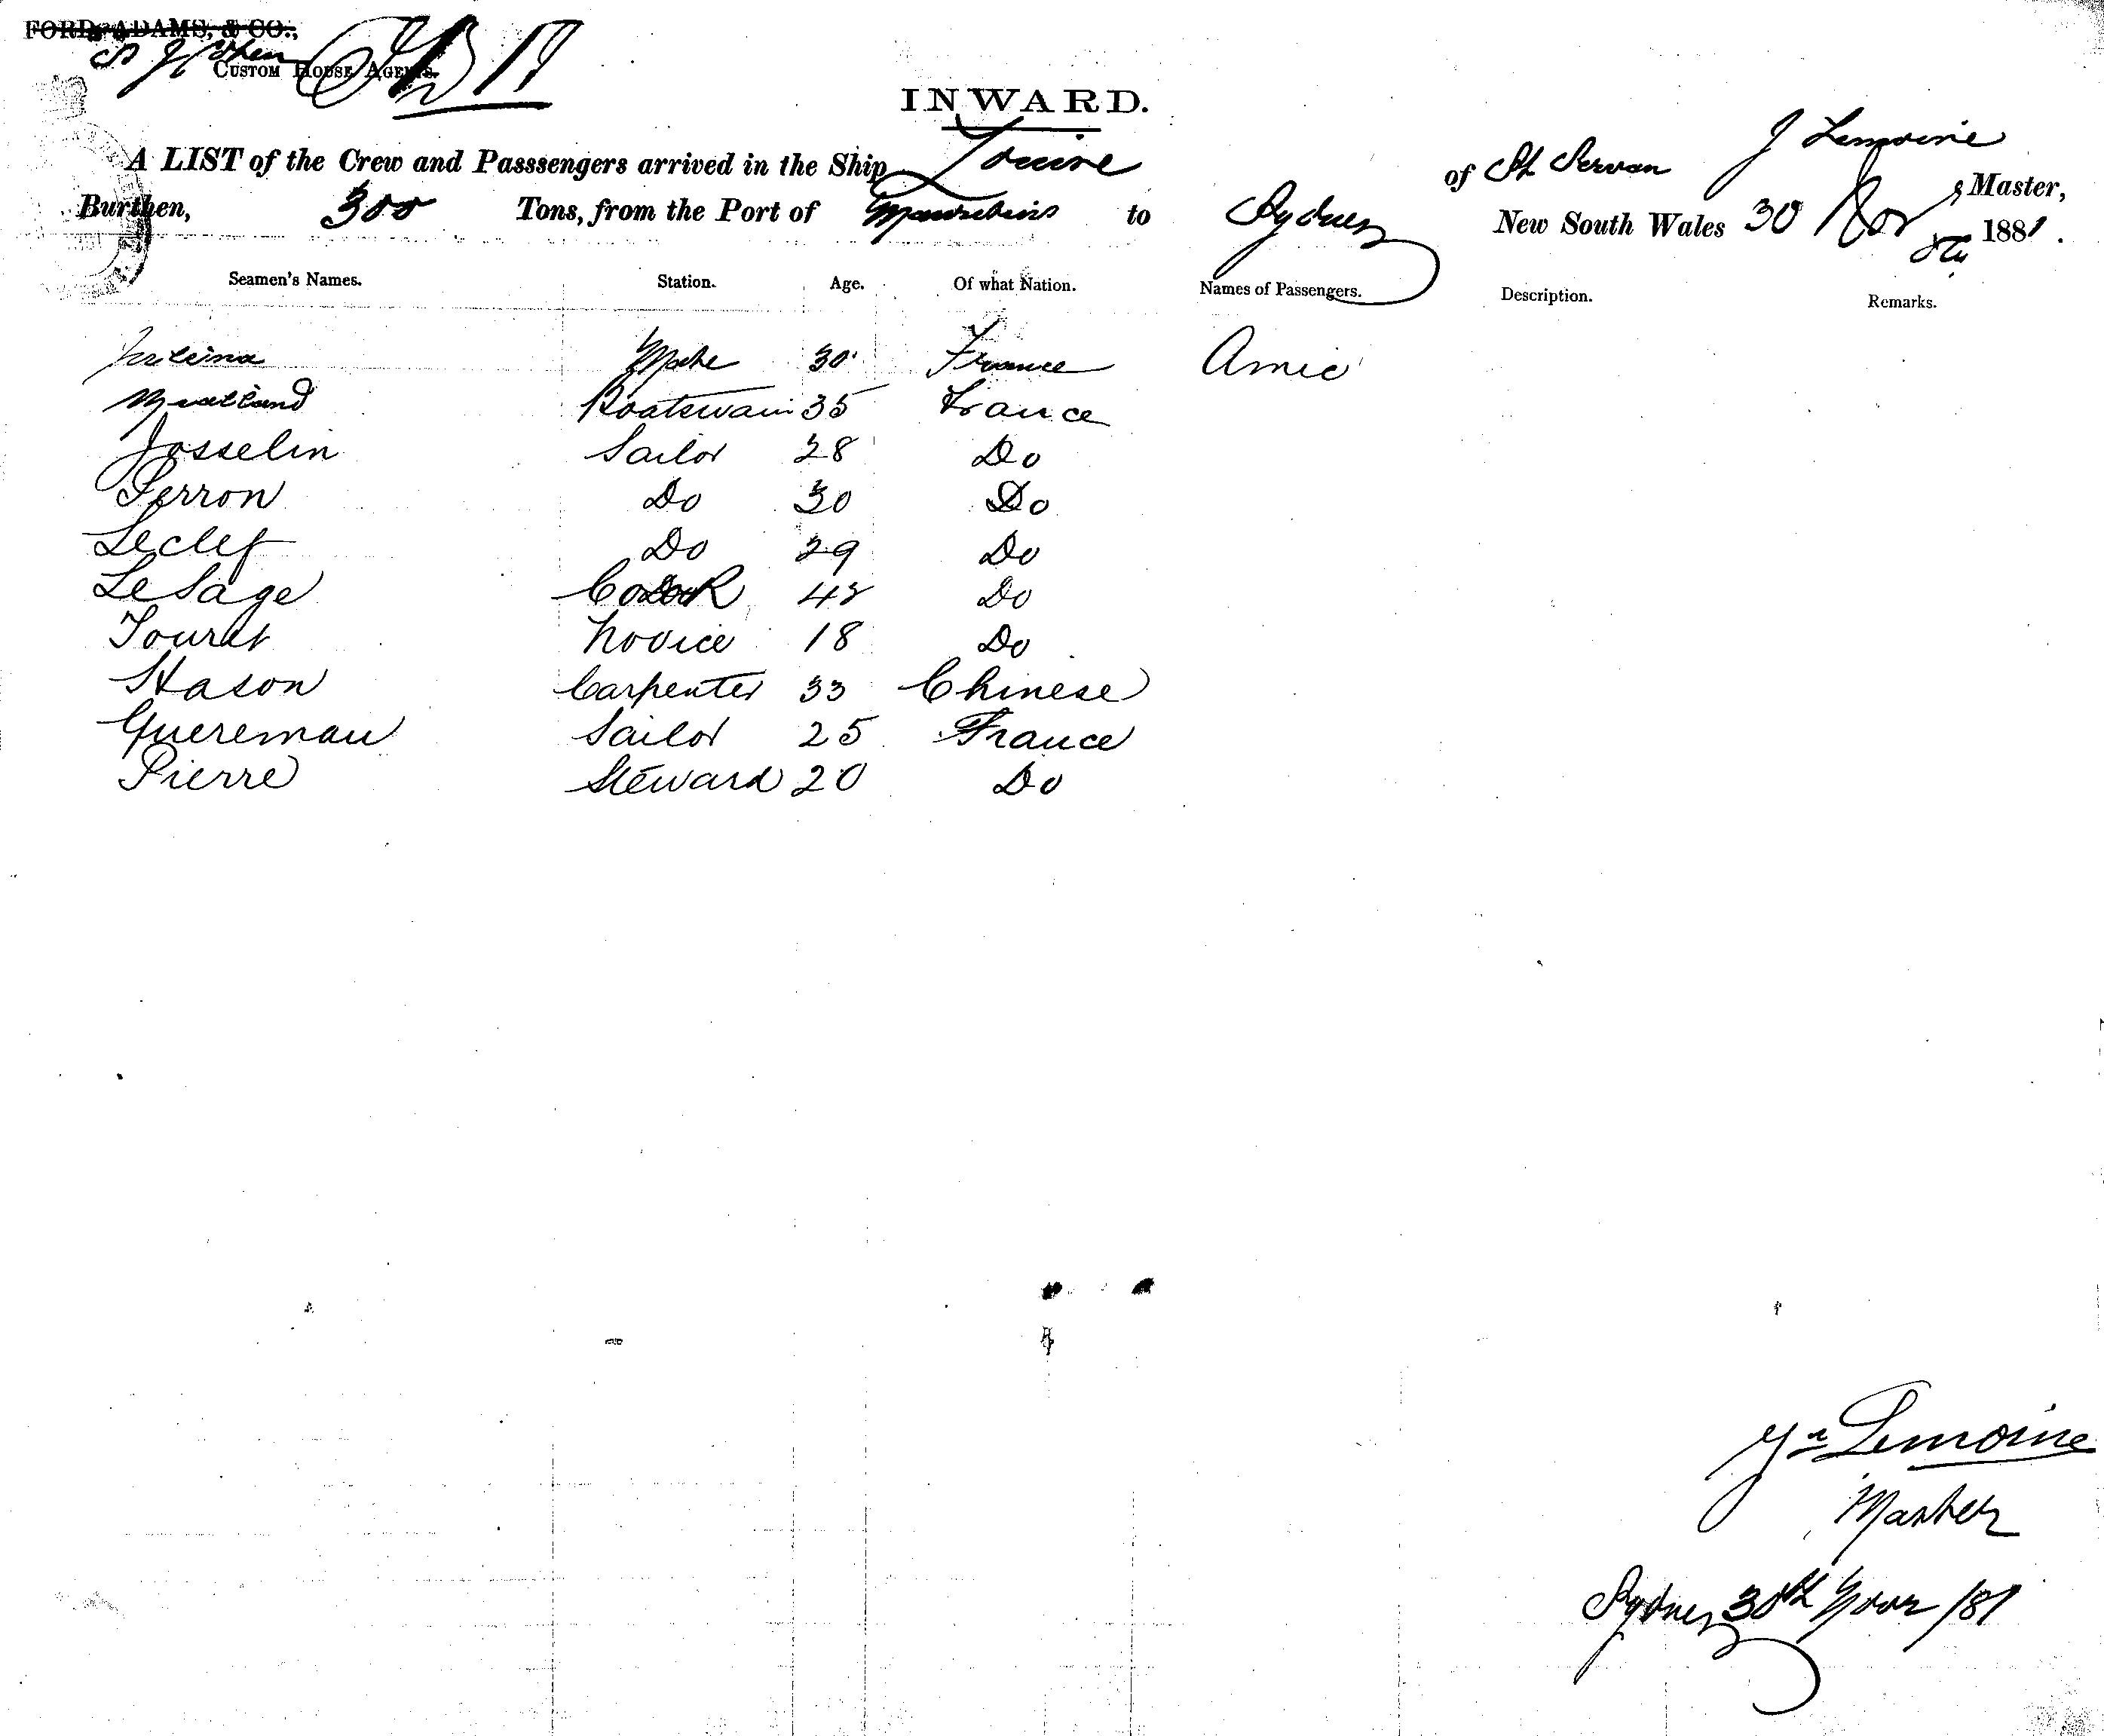 FORD, ADAMS, & CO.,
CUSTOM HOUSE AGENTS.
INWARD.
A LIST of the Crew and Passsengers arrived in the Ship Louise of St Servan J Lemoine Master,
Burthen, 300 Tons, from the Port of Mauritius to Sydney New South Wales 30 Nov 1881.
Seamen's Names. Station. Age. Of what Nation. Names of Passengers. Description. Remarks.
Mate 30 France Amic
Boatswain 35 France
Josselin Sailor 28 Do
Perron Do 30 Do
Leclef Do 29 Do
LeSage Cook 42 Do
Touret Novice 18 Do
Hason Carpenter 33 Chinese
Queremau Sailor 25 France
Pierre Steward 20 Do
Lemoine
Master
Sydney 30th Novr /81